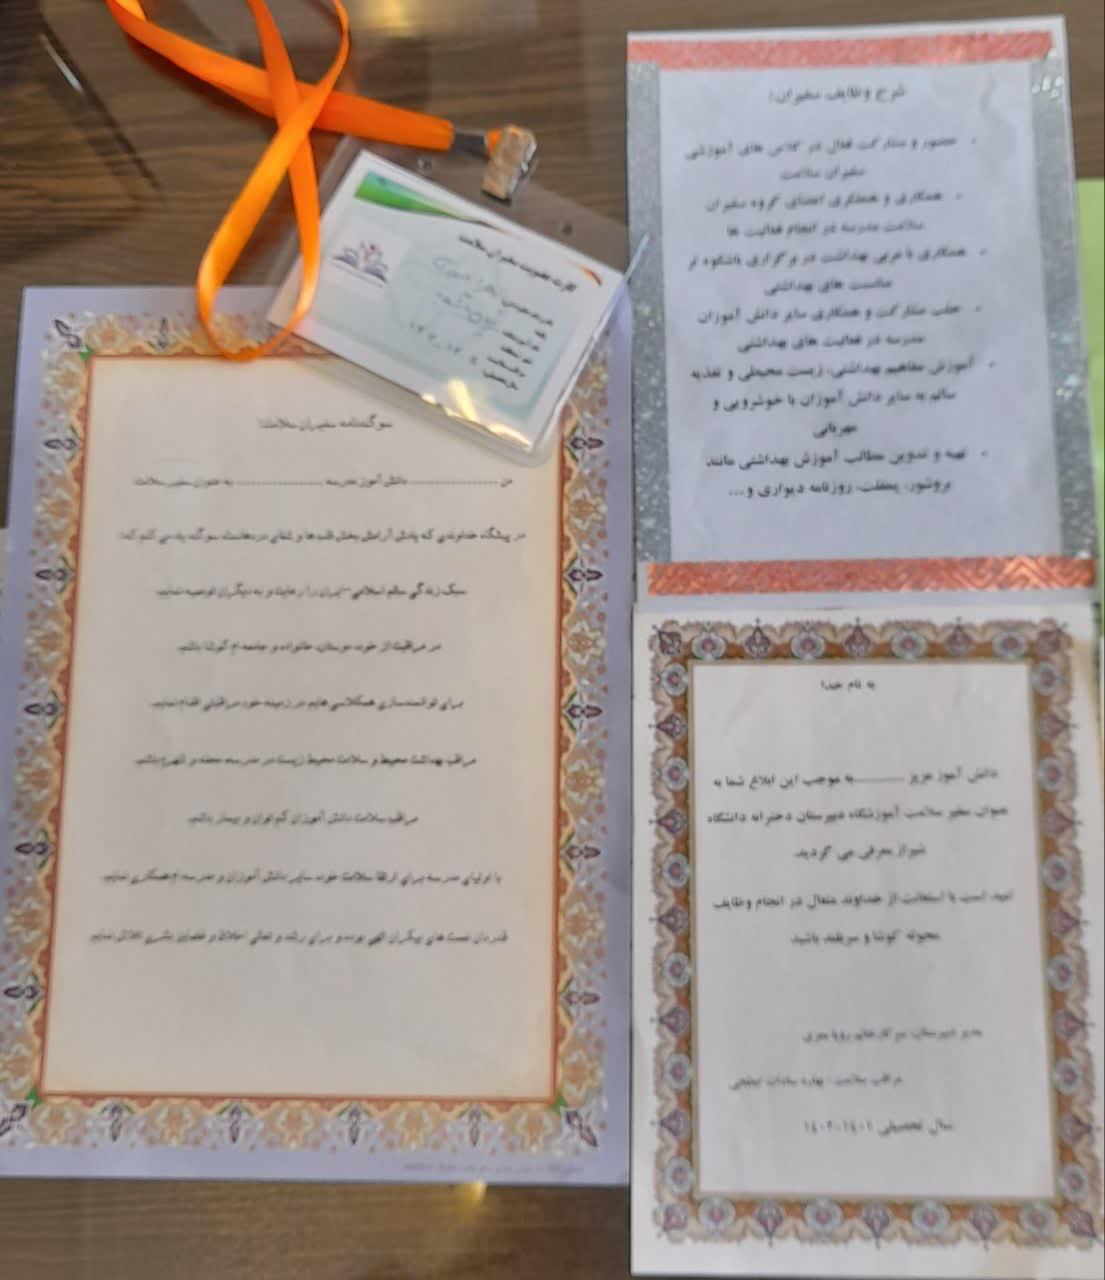 شرح وظایف سفیران:
حضور و مشارکت فعال در کلاس های آموزشی
سفیران سلامت
همکاری و همفکری اعضای گروه سفیران
سلامت مدرسه در انجام فعالیت ها
همکاری با مربی بهداشت در برگزاری باشکوه تر
مناسبت های بهداشتی
جلب مشارکت و همکاری سایر دانش آموزان
مدرسه در فعالیت های بهداشتی
آموزش مفاهیم بهداشتی، زیست محیطی و تغذیه
سالم به سایر دانش آموزان با خوشرویی و
مهربانی
تهیه و تدوین مطالب آموزش بهداشتی مانند
بروشور، پمفلت، روزنامه دیواری و...
کارت عضویت سفیران سلامت
سوگندنامه سفیران سلامت:
من .................... دانش آموز مدرسه .................... به عنوان سفیر سلامت
در پیشگاه خداوندی که یادش آرامش بخش قلب ها و شفای دردهاست سوگند یاد می کنم که:
سبک زندگی سالم اسلامی-ایرانی را رعایت و به دیگران توصیه نمایم.
در مراقبت از خود، دوستان، خانواده و جامعه ام کوشا باشم.
برای توانمندسازی همکلاسی هایم در زمینه خود مراقبتی اقدام نمایم.
مراقب بهداشت محیط و سلامت محیط زیست در مدرسه، محله و شهرم باشم.
مراقب سلامت دانش آموزان کم توان و بیمار باشم.
با اولیای مدرسه برای ارتقا سلامت خود، سایر دانش آموزان و مدرسه ام همکاری نمایم.
قدردان نعمت های بیکران الهی بوده و برای رشد و تعالی اخلاق و فضایل بشری تلاش نمایم.
به نام خدا
دانش آموز عزیز ............ به موجب این ابلاغ شما به
عنوان سفیر سلامت آموزشگاه دبیرستان دخترانه دانشگاه
شیراز معرفی می گردید.
امید است با استعانت از خداوند متعال در انجام وظایف
محوله کوشا و سربلند باشید
مدیر دبیرستان: سرکارخانم رویا
مراقب سلامت: بهاره سادات
سال تحصیلی ۱۴۰۱-۱۴۰۲